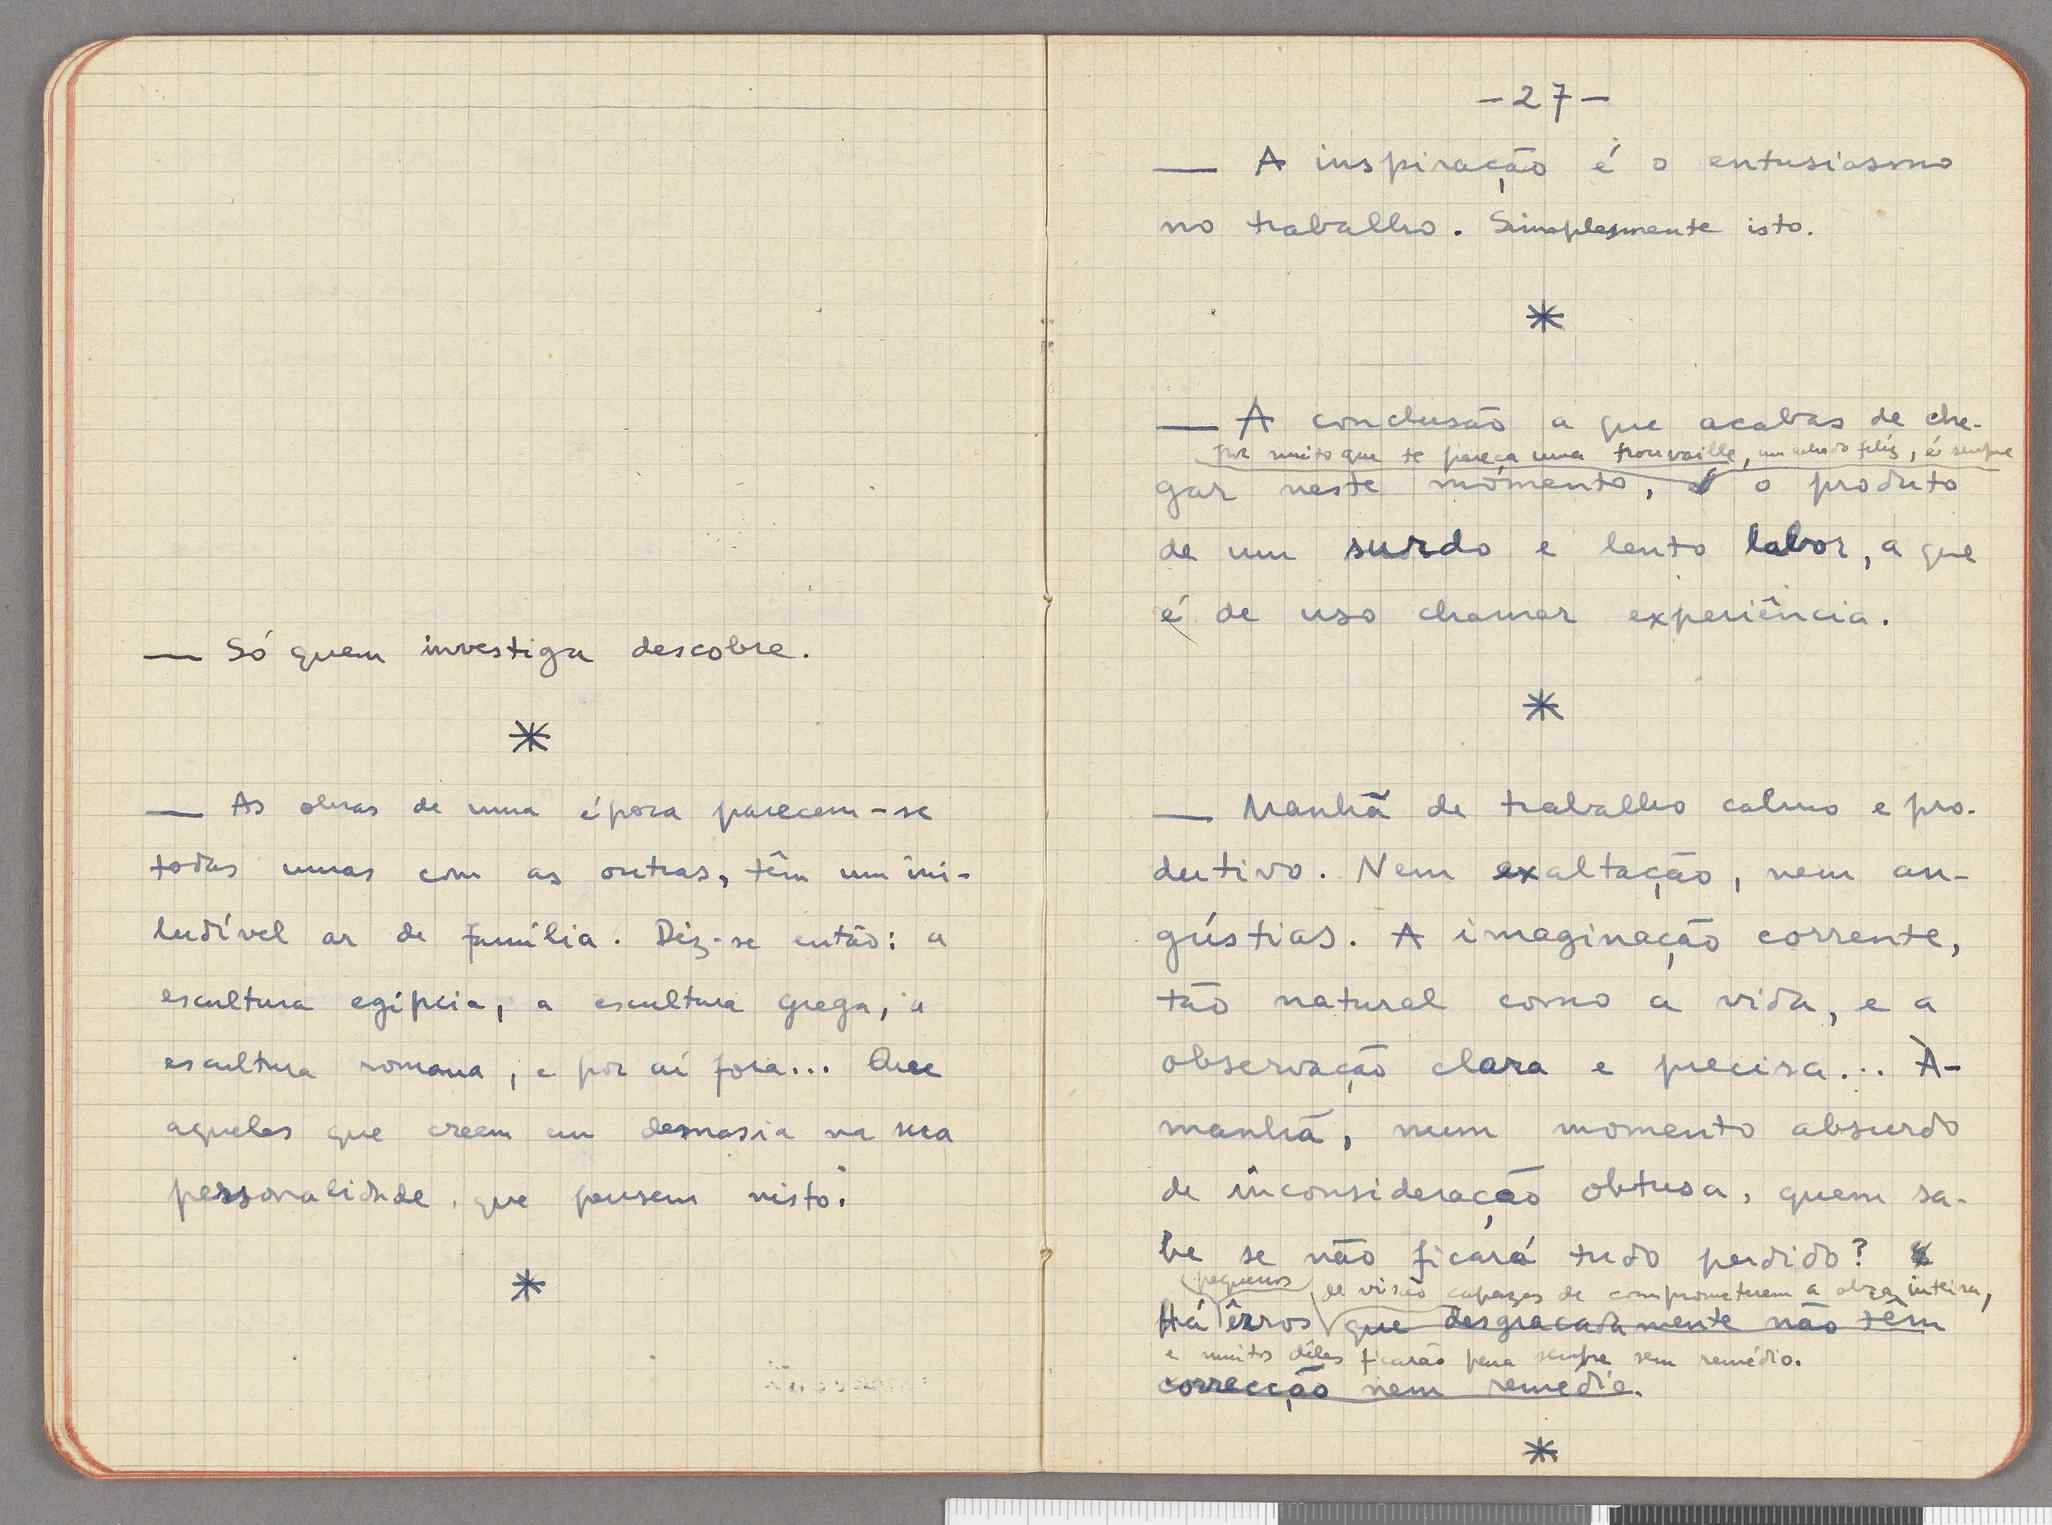 — Só quem investiga descobre.
*
— As obras de uma época parecem-se
todas umas com as outras, têm um ini-
ludível ar de família. Diz-se então: a
escultura egípcia, a escultura grega, a
escultura romana, e por aí fora... Que
aqueles que creem em demasia na sua
personalidade, que pensem nisto.
*
— 27 —
— A inspiração é o entusiasmo
no trabalho. Simplesmente isto.
*
— A conclusão a que acabas de che-
por muito que te pareça uma trouvaille, um achado feliz, é sempre
gar neste momento, é o produto
de um surdo e lento labor, a que
é de uso chamar experiência.
*
— Manhã de trabalho calmo e pro-
dutivo. Nem exaltação, nem an-
gústias. A imaginação corrente,
tão natural como a vida, e a
observação clara e precisa... À-
manhã, num momento absurdo
de inconsideração obtusa, quem sa-
be se não ficará tudo perdido?
pequenos de visão capazes de comprometerem a obra inteira,
Há êrros que desgraçadamente não têm
e muitos dêles ficarão para sempre sem remédio.
correcção nem remédio.
*